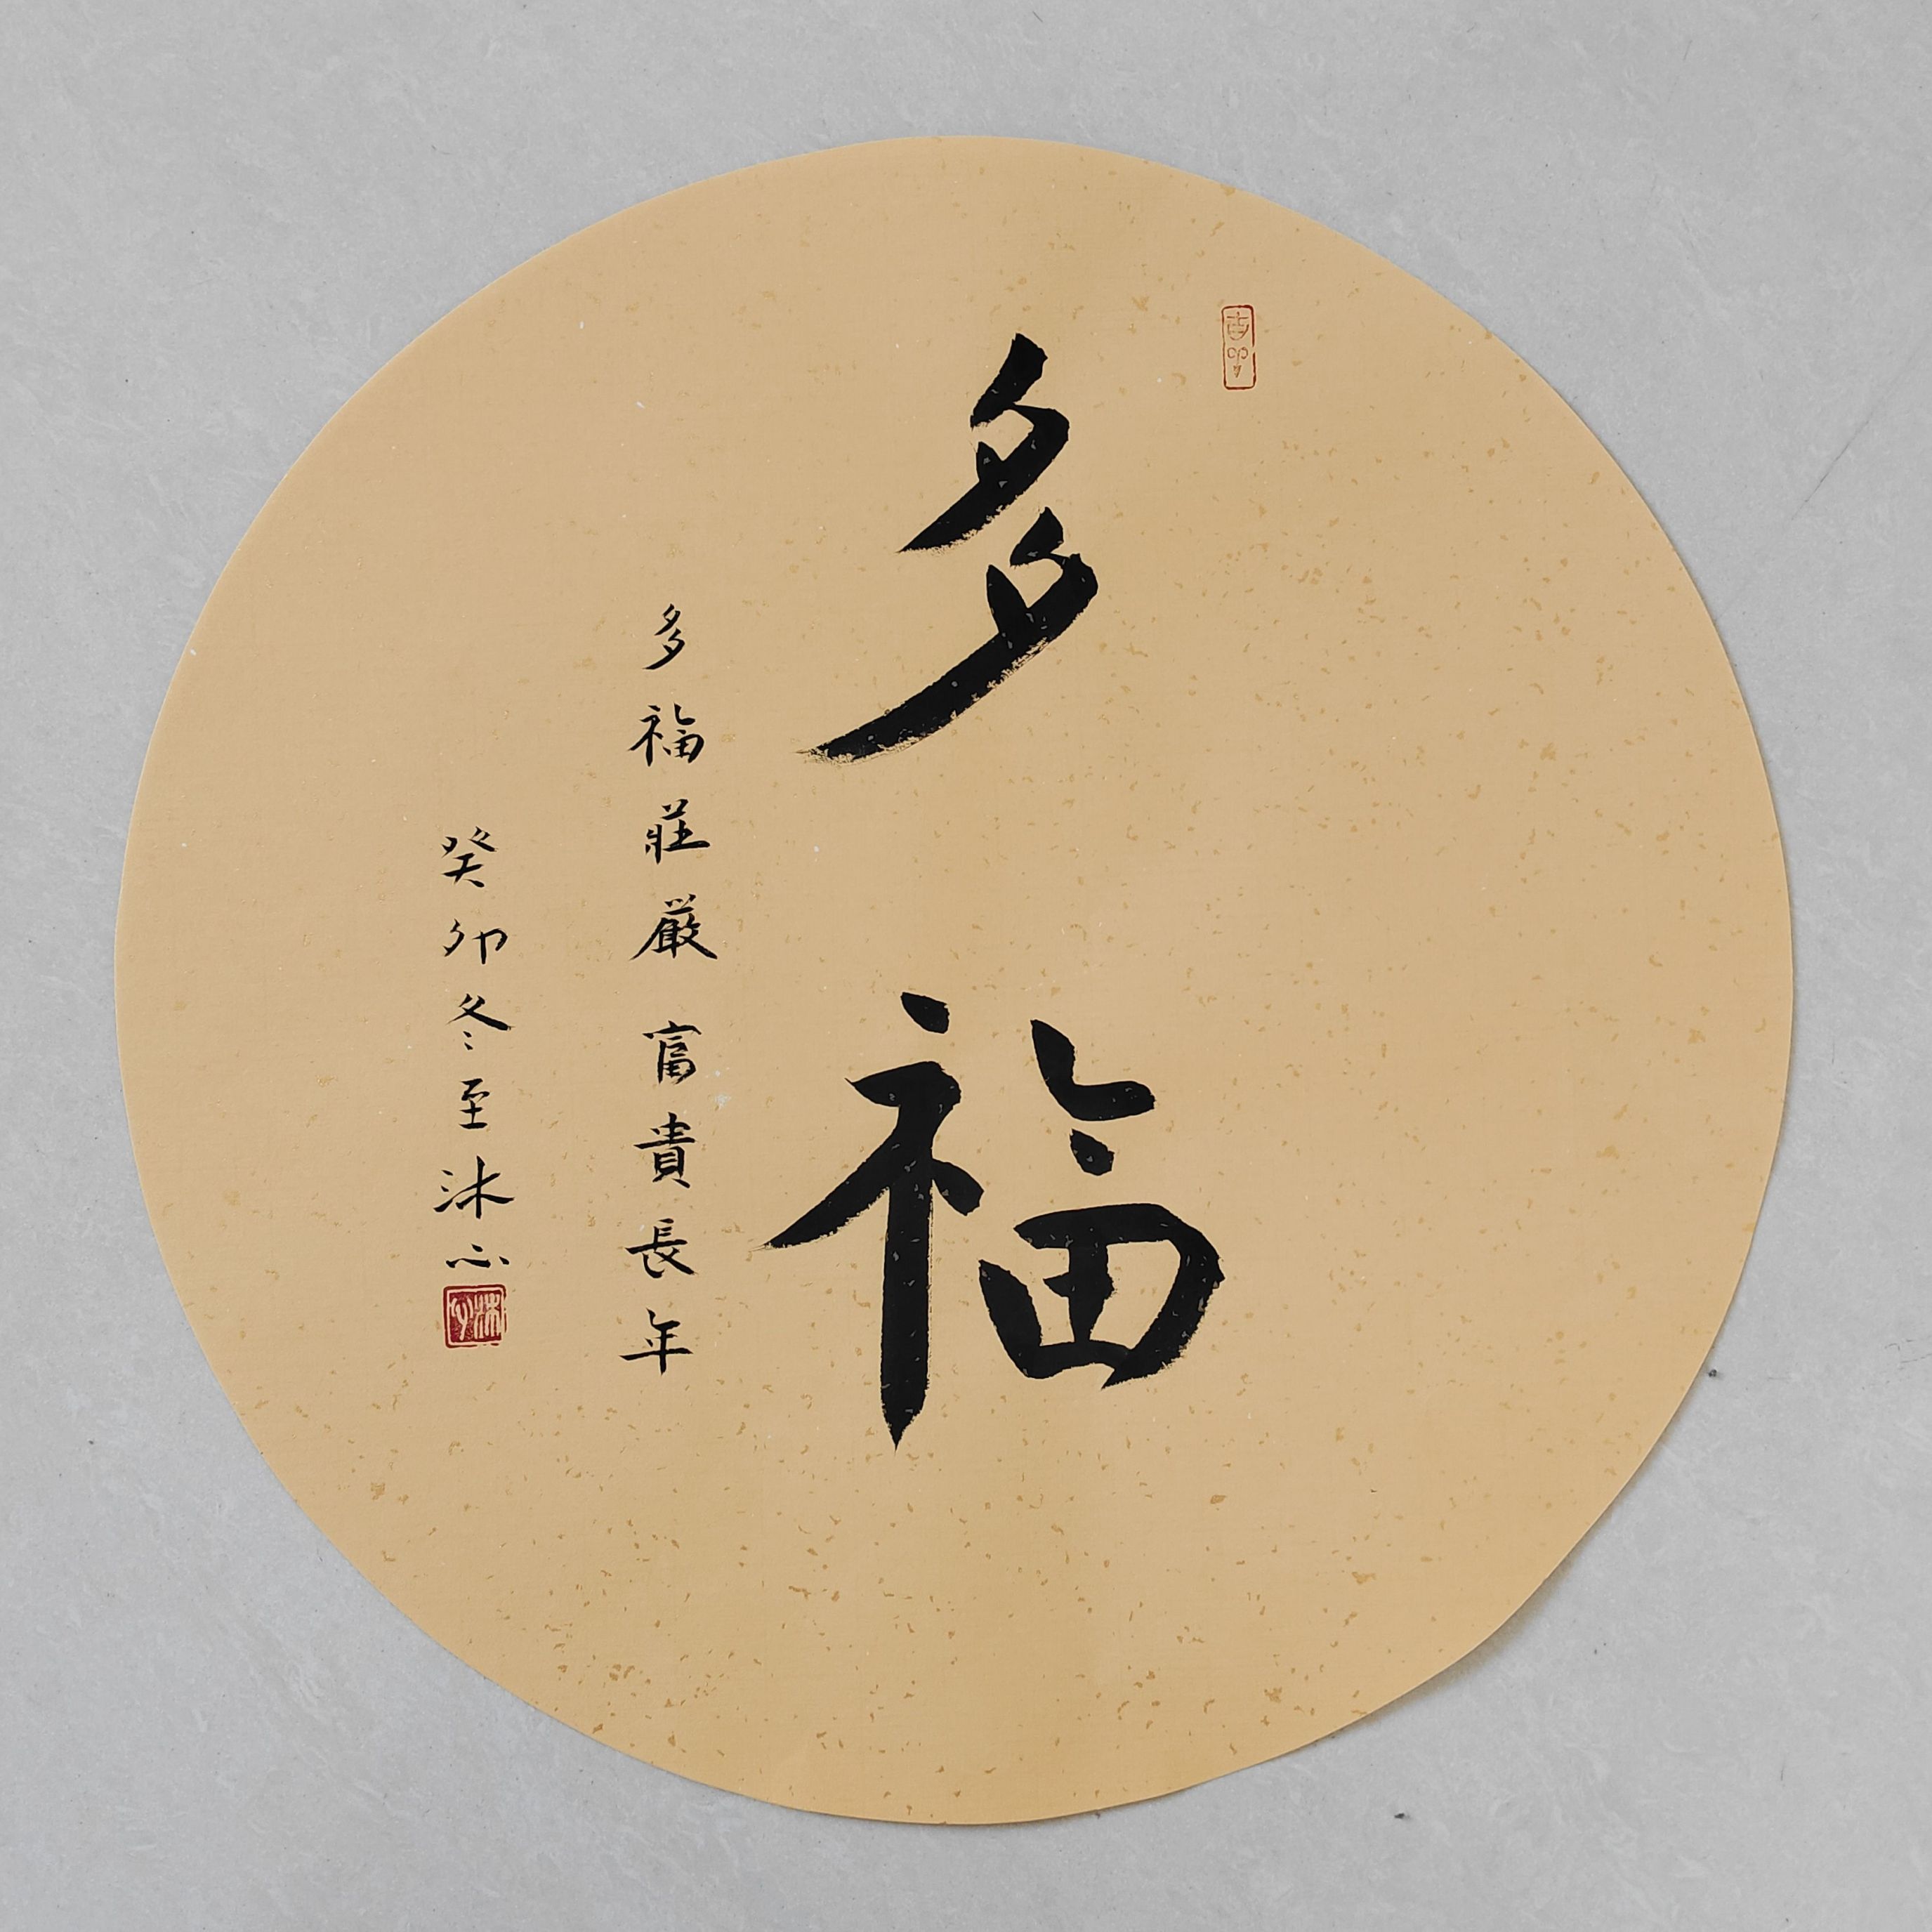 多福
多福莊嚴 富貴長年
癸卯冬至沐心
沐心